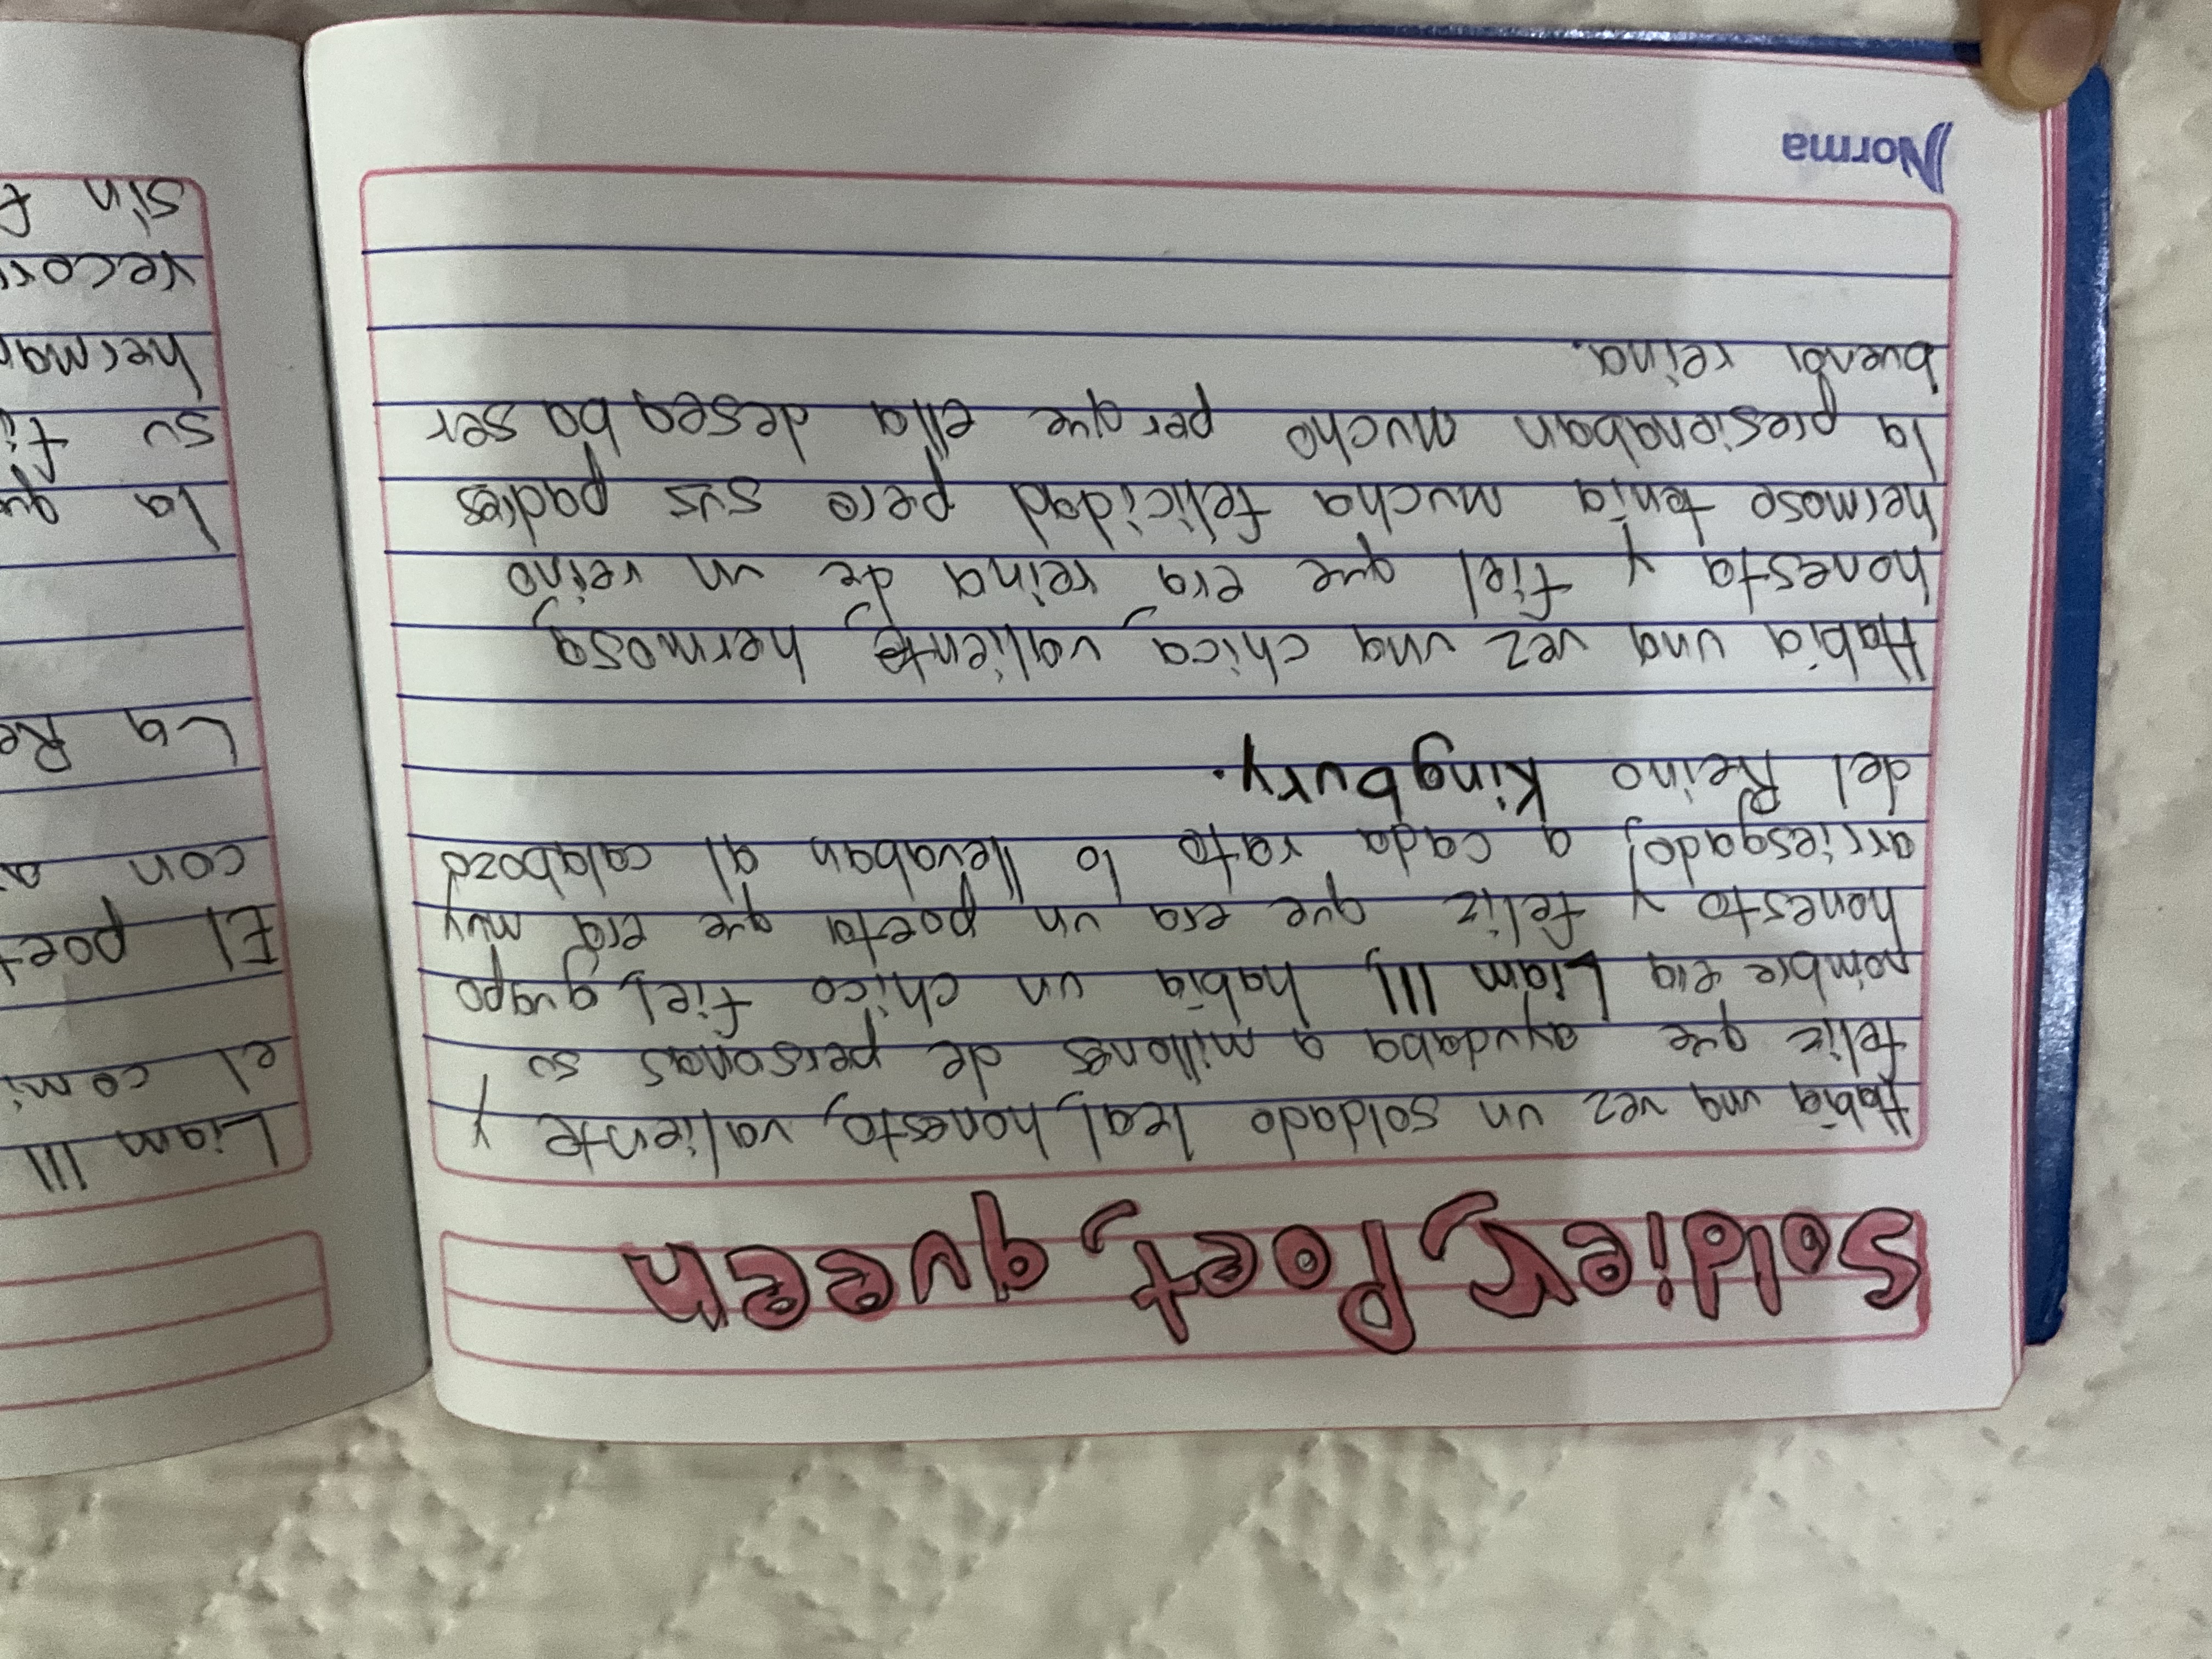 Soldier, Poet, queen
Había una vez un soldado leal, honesto, valiente y
feliz que ayudaba a millones de personas su
nombre era Liam III, había un chico fiel, guapo
honesto y feliz que era un poeta que era muy
arriesgado, a cada rato lo llevaban al calabozo
del Reino Kingbury.
Había una vez una chica, valiente, hermosa,
honesta y fiel que era reina de un reino
hermoso tenía mucha felicidad pero sus padres
la presionaban mucho perque ella deseaba ser
buena reina.
Norma
Liam III
el comi
El poet
con a
La Re
la qu
su fi
herman
recorr
sin f